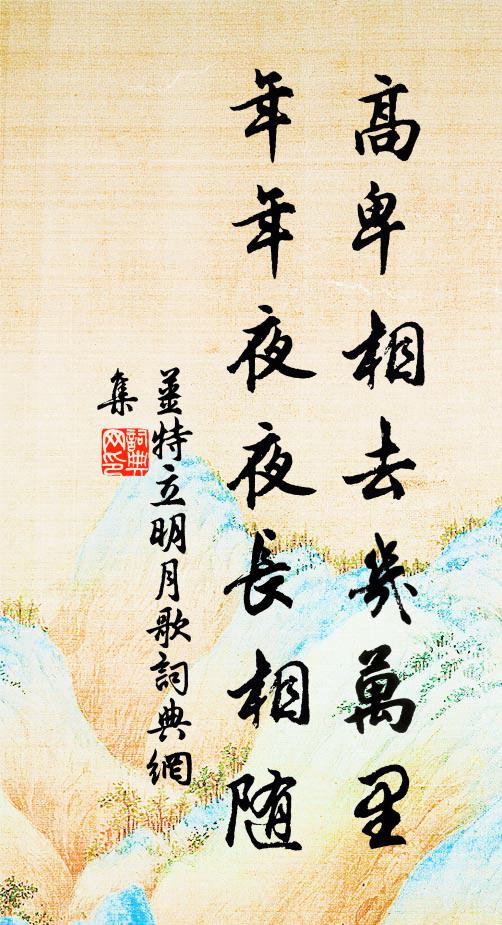 高卑相去幾萬里
年年夜夜長相隨
姜特立明月歌詞典網
集
詞典
网印